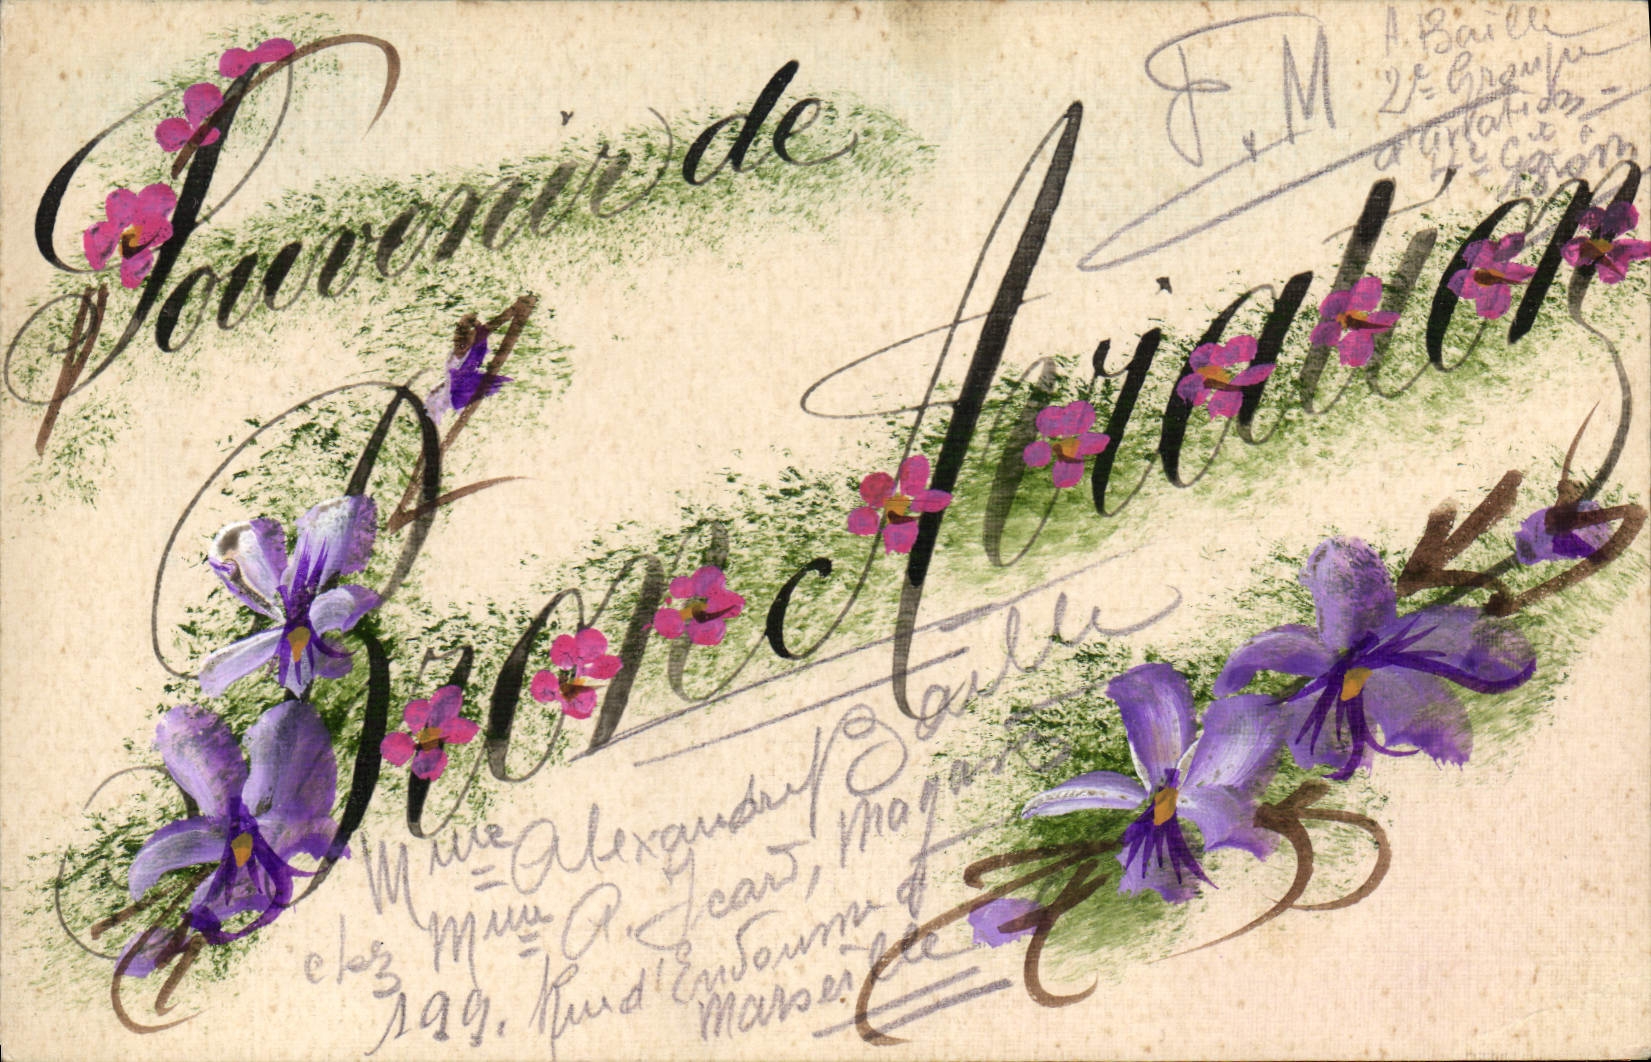 Souvenir de
Bron Aviation
F.M
A. Baille
2e Groupe
d'aviation
Mme Alexandre Baille
chez Mme A. Icard, Magasin
199. Rue d'Endoume
Marseille